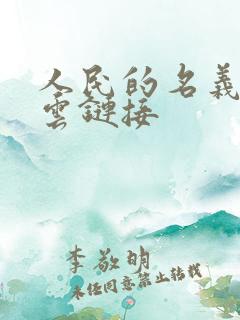 人民的名義
雲鏈接
李敬明
未经同意禁止转载